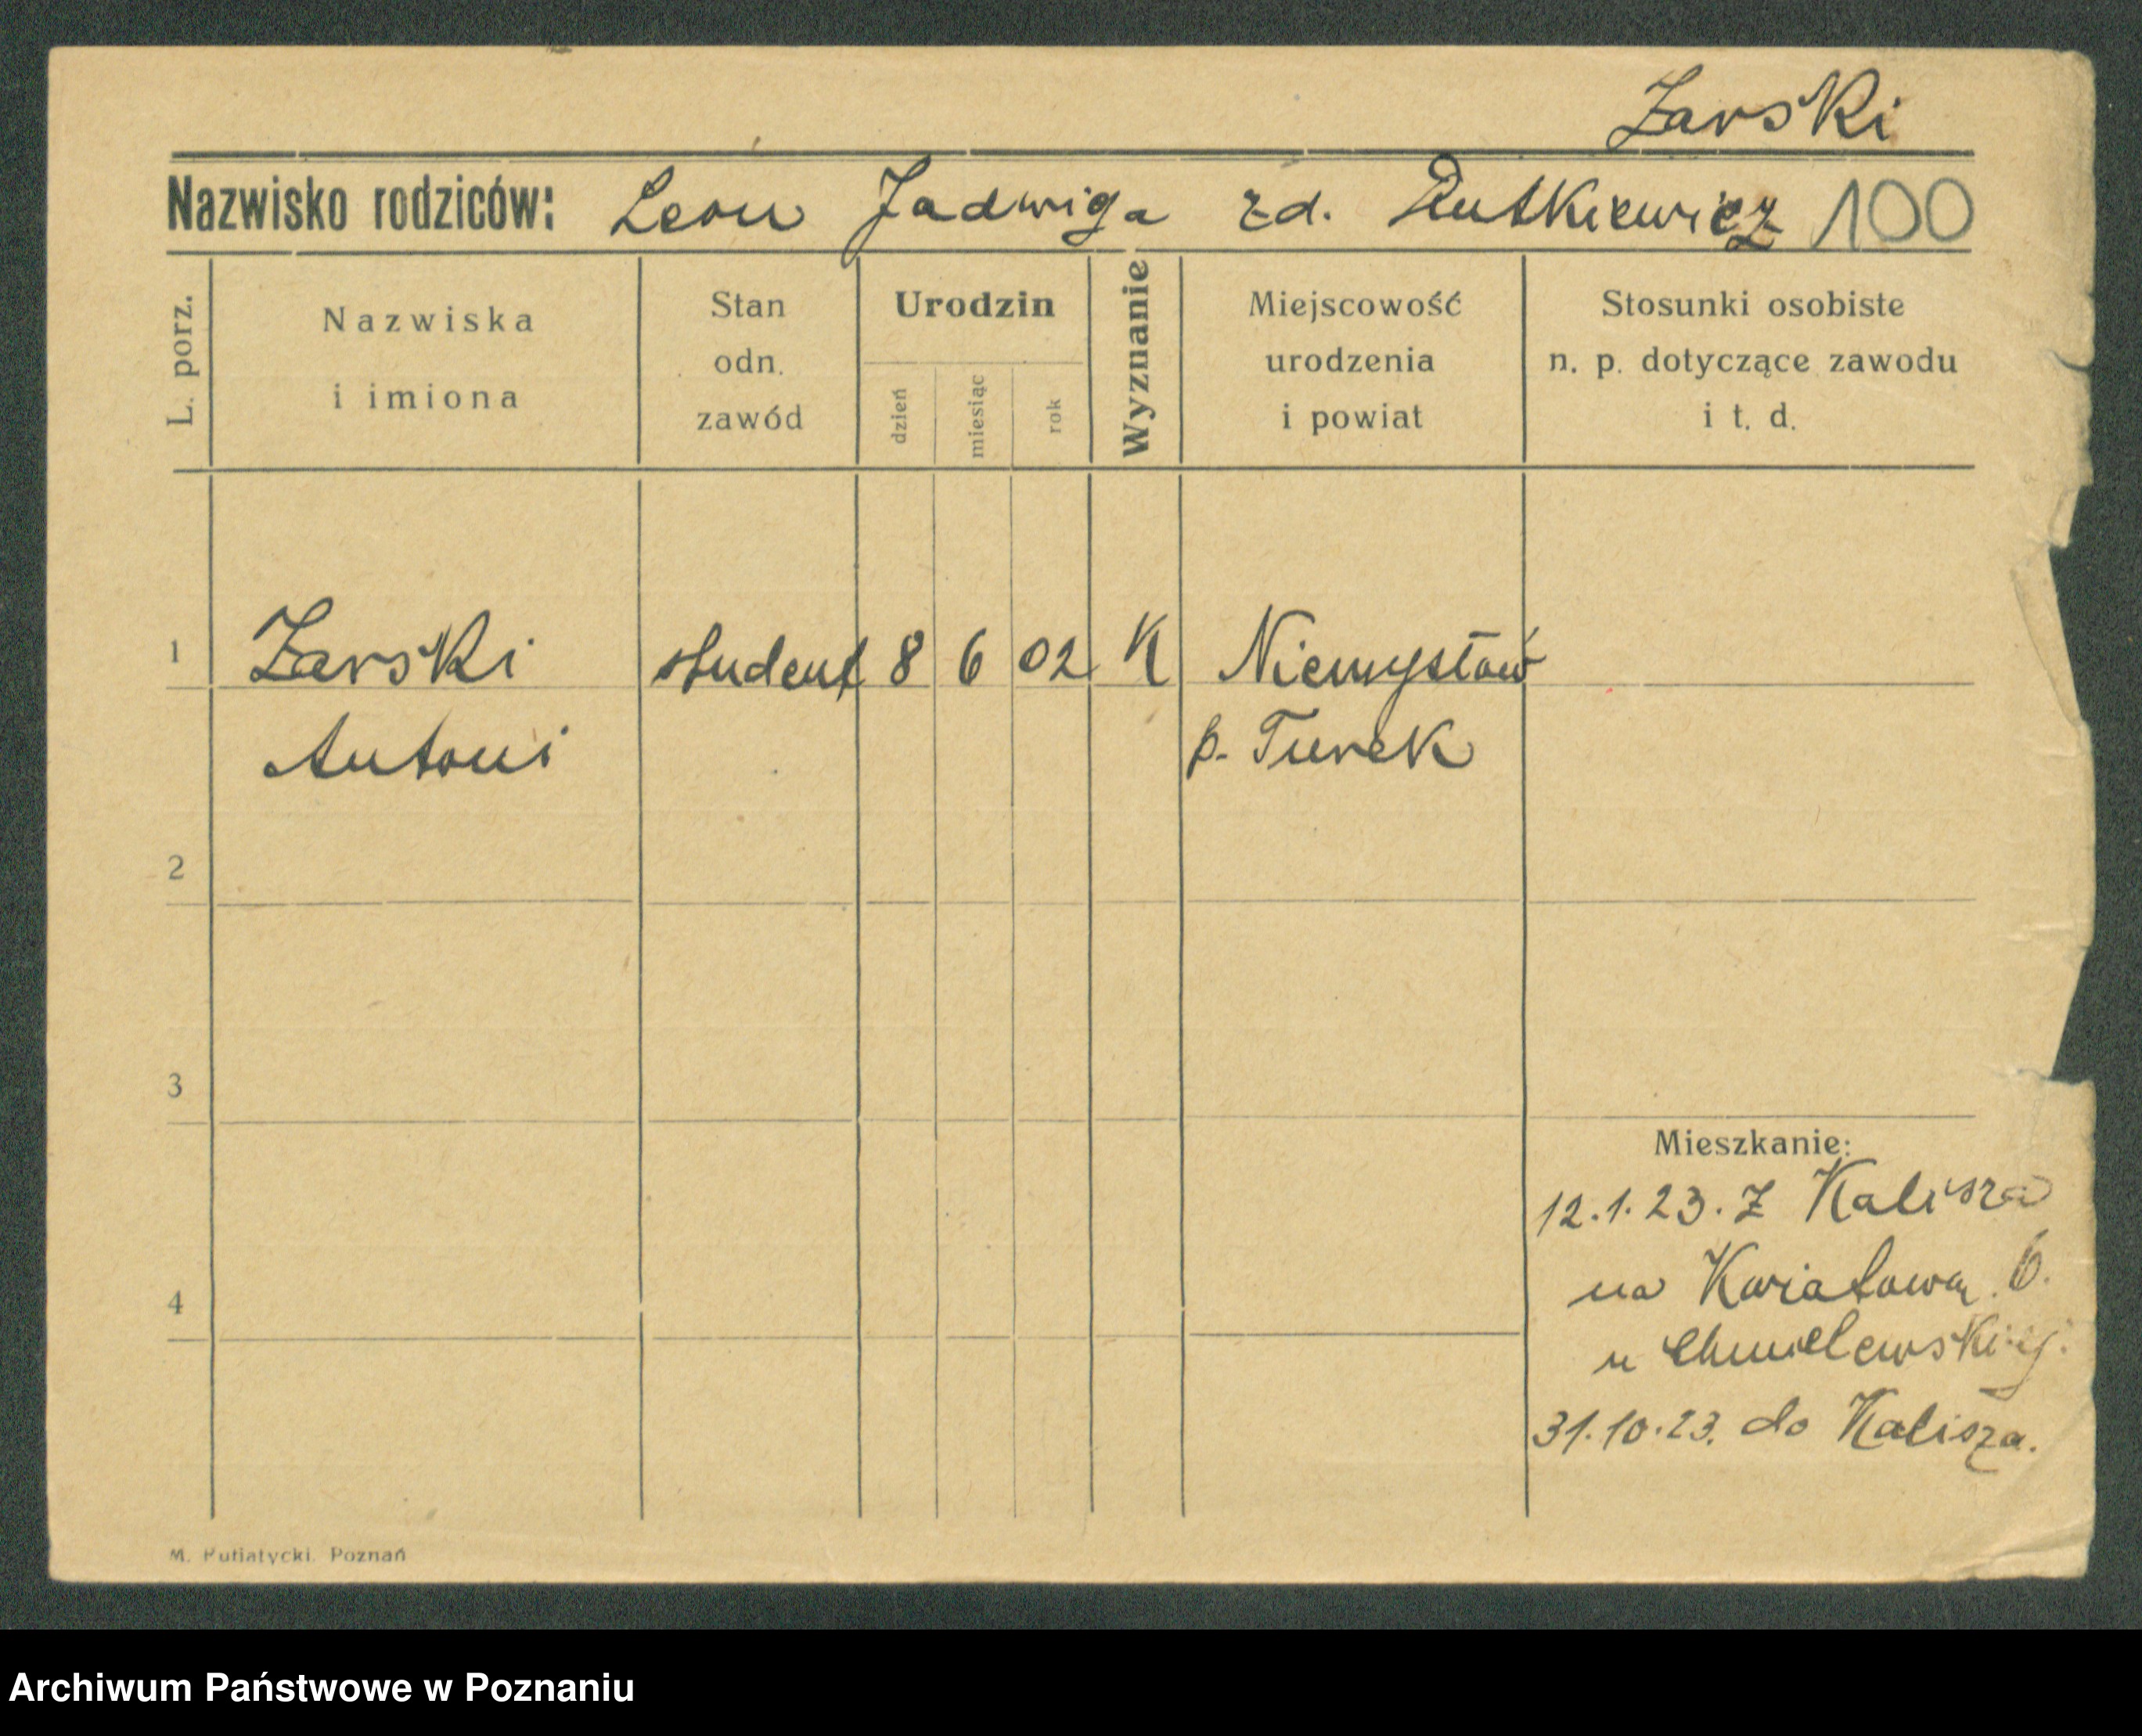 Żarski
Nazwisko rodziców: Leon Jadwiga zd. Rutkiewicz 100
L. porz.
Nazwiska
i imiona
Stan
odn.
zawód
Urodzin
dzień
miesiąc
rok
Wyznanie
Miejscowość
urodzenia
i powiat
Stosunki osobiste
n. p. dotyczące zawodu
i t. d.
1 Żarski student 8 6 02 K Niemysłów
Antoni p. Turek
2
3
Mieszkanie:
12.1.23. z Kalisza
na Kwiatową 6.
4
u Chmielewskiej.
31.10.23. do Kalisza.
M. Putiatycki. Poznań
Archiwum Państwowe w Poznaniu